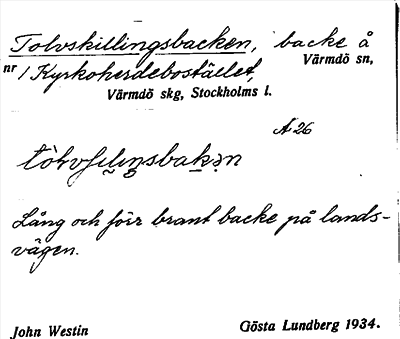 Tolvskillingsbacken, backe å
nr 1 Kyrkoherdebostället, Värmdö sn,
Värmdö skg, Stockholms l.
A 26
Lång och förr brant backe på lands-
vägen.
John Westin
Gösta Lundberg 1934.